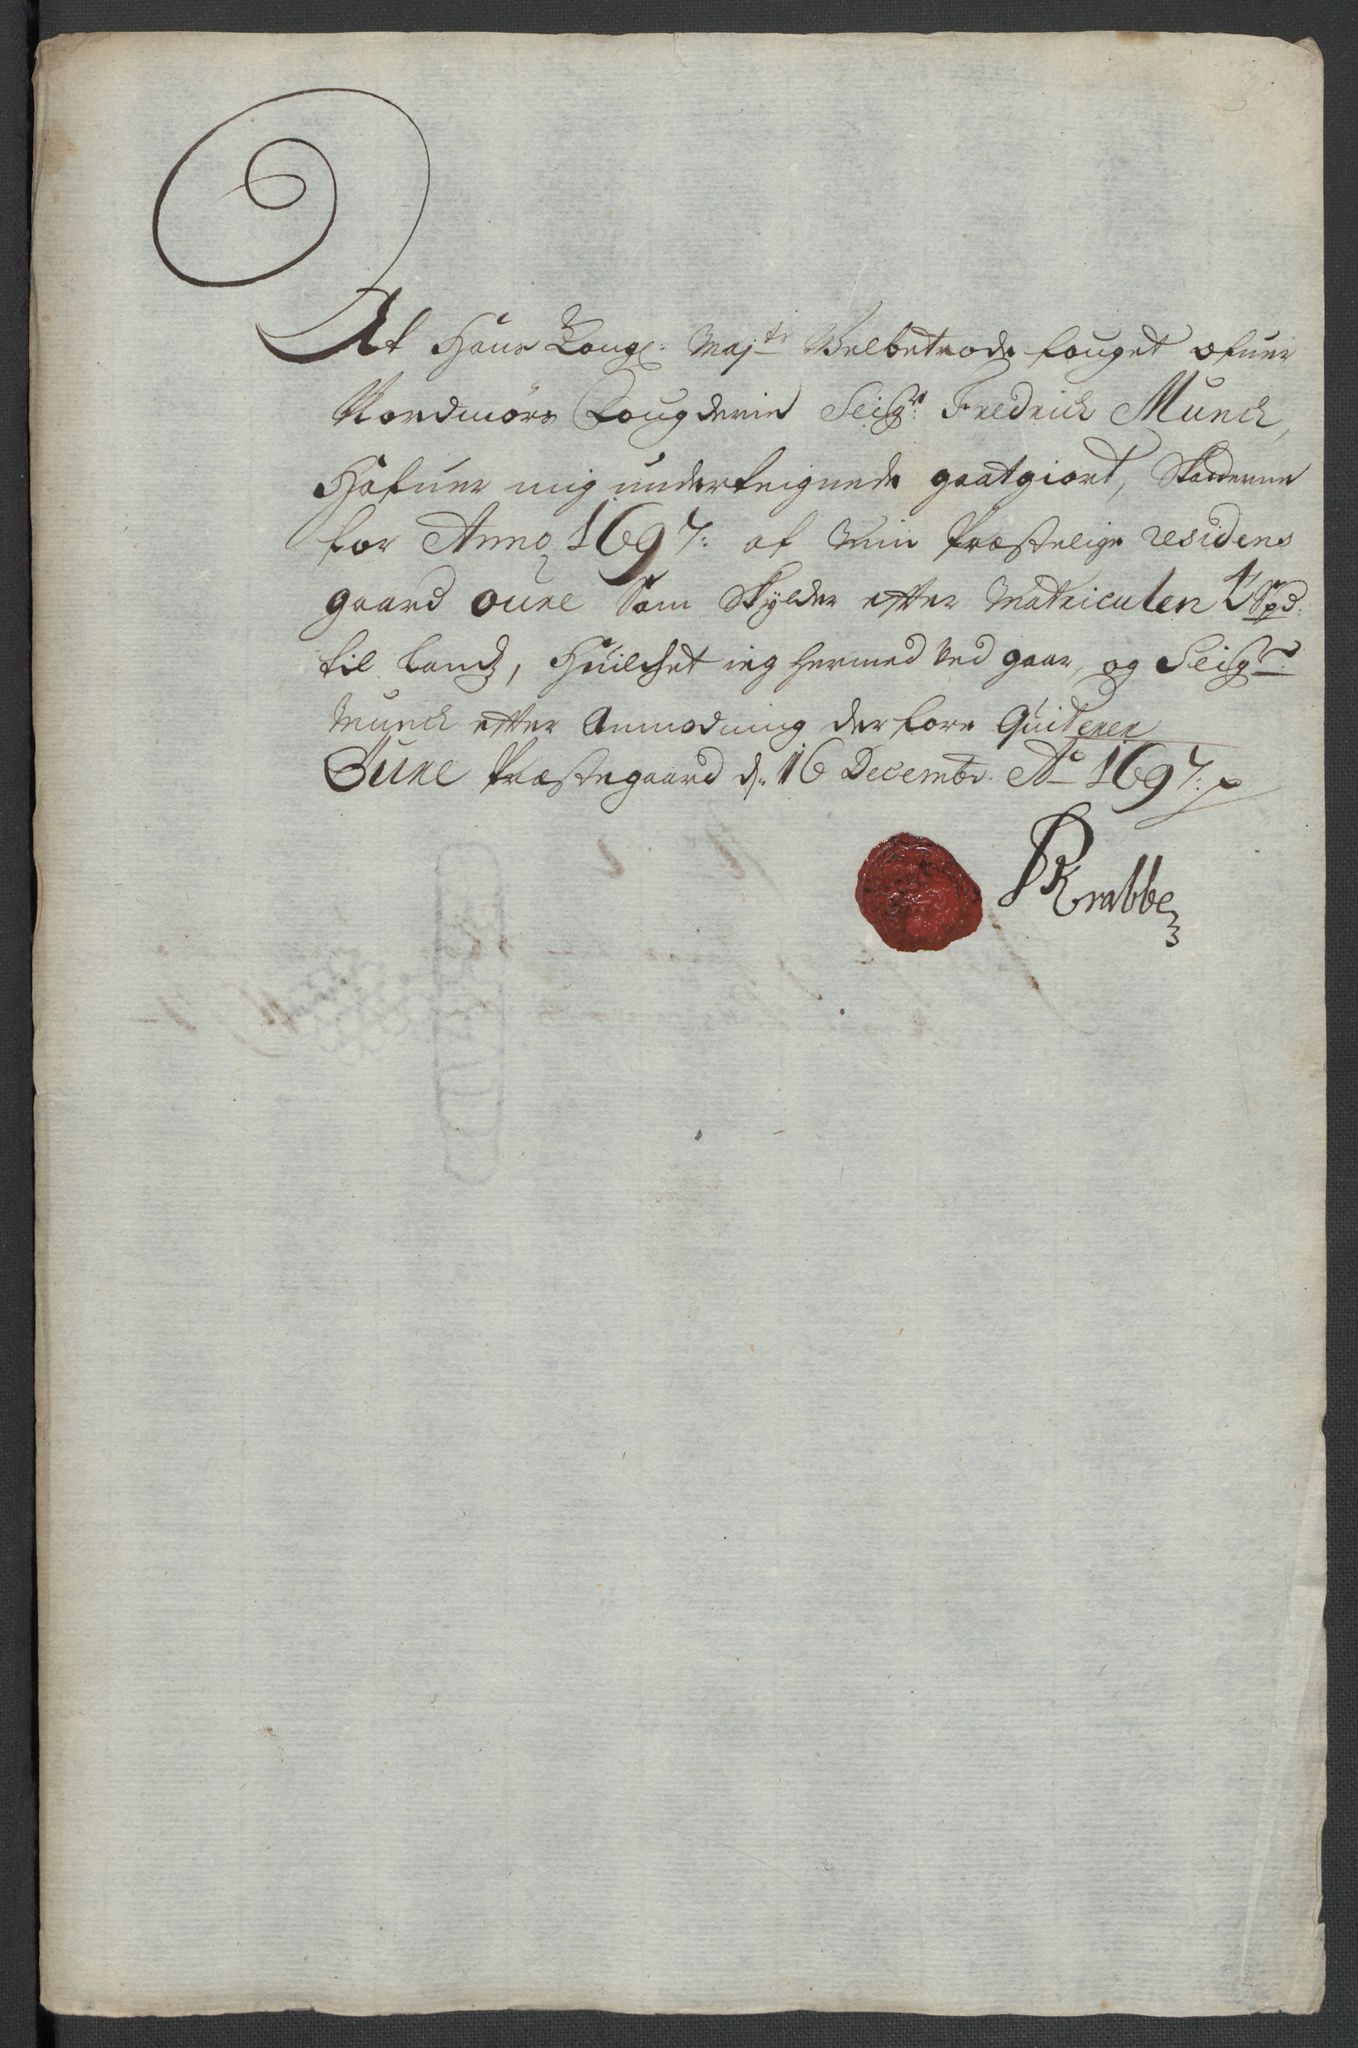 At Hans Kongl: Majts Velbetrode fouget ofuer
Nordmørs Fougderie Seigr: Fredrich Munch,
Hafuer mig underteignede gaatgiort, Skatterne
for Anno 1697: af Min Præstelige residens
gaard oure Som Skylder efter Matriculen 4 Spd:
til Land, Huilchet ieg hermed Ved gaar, og Seigr
Munch efter Anmodning derfore Quiterer
Oure Præstegaard d: 16 Decembr. Ao 1697:
PKrabbe